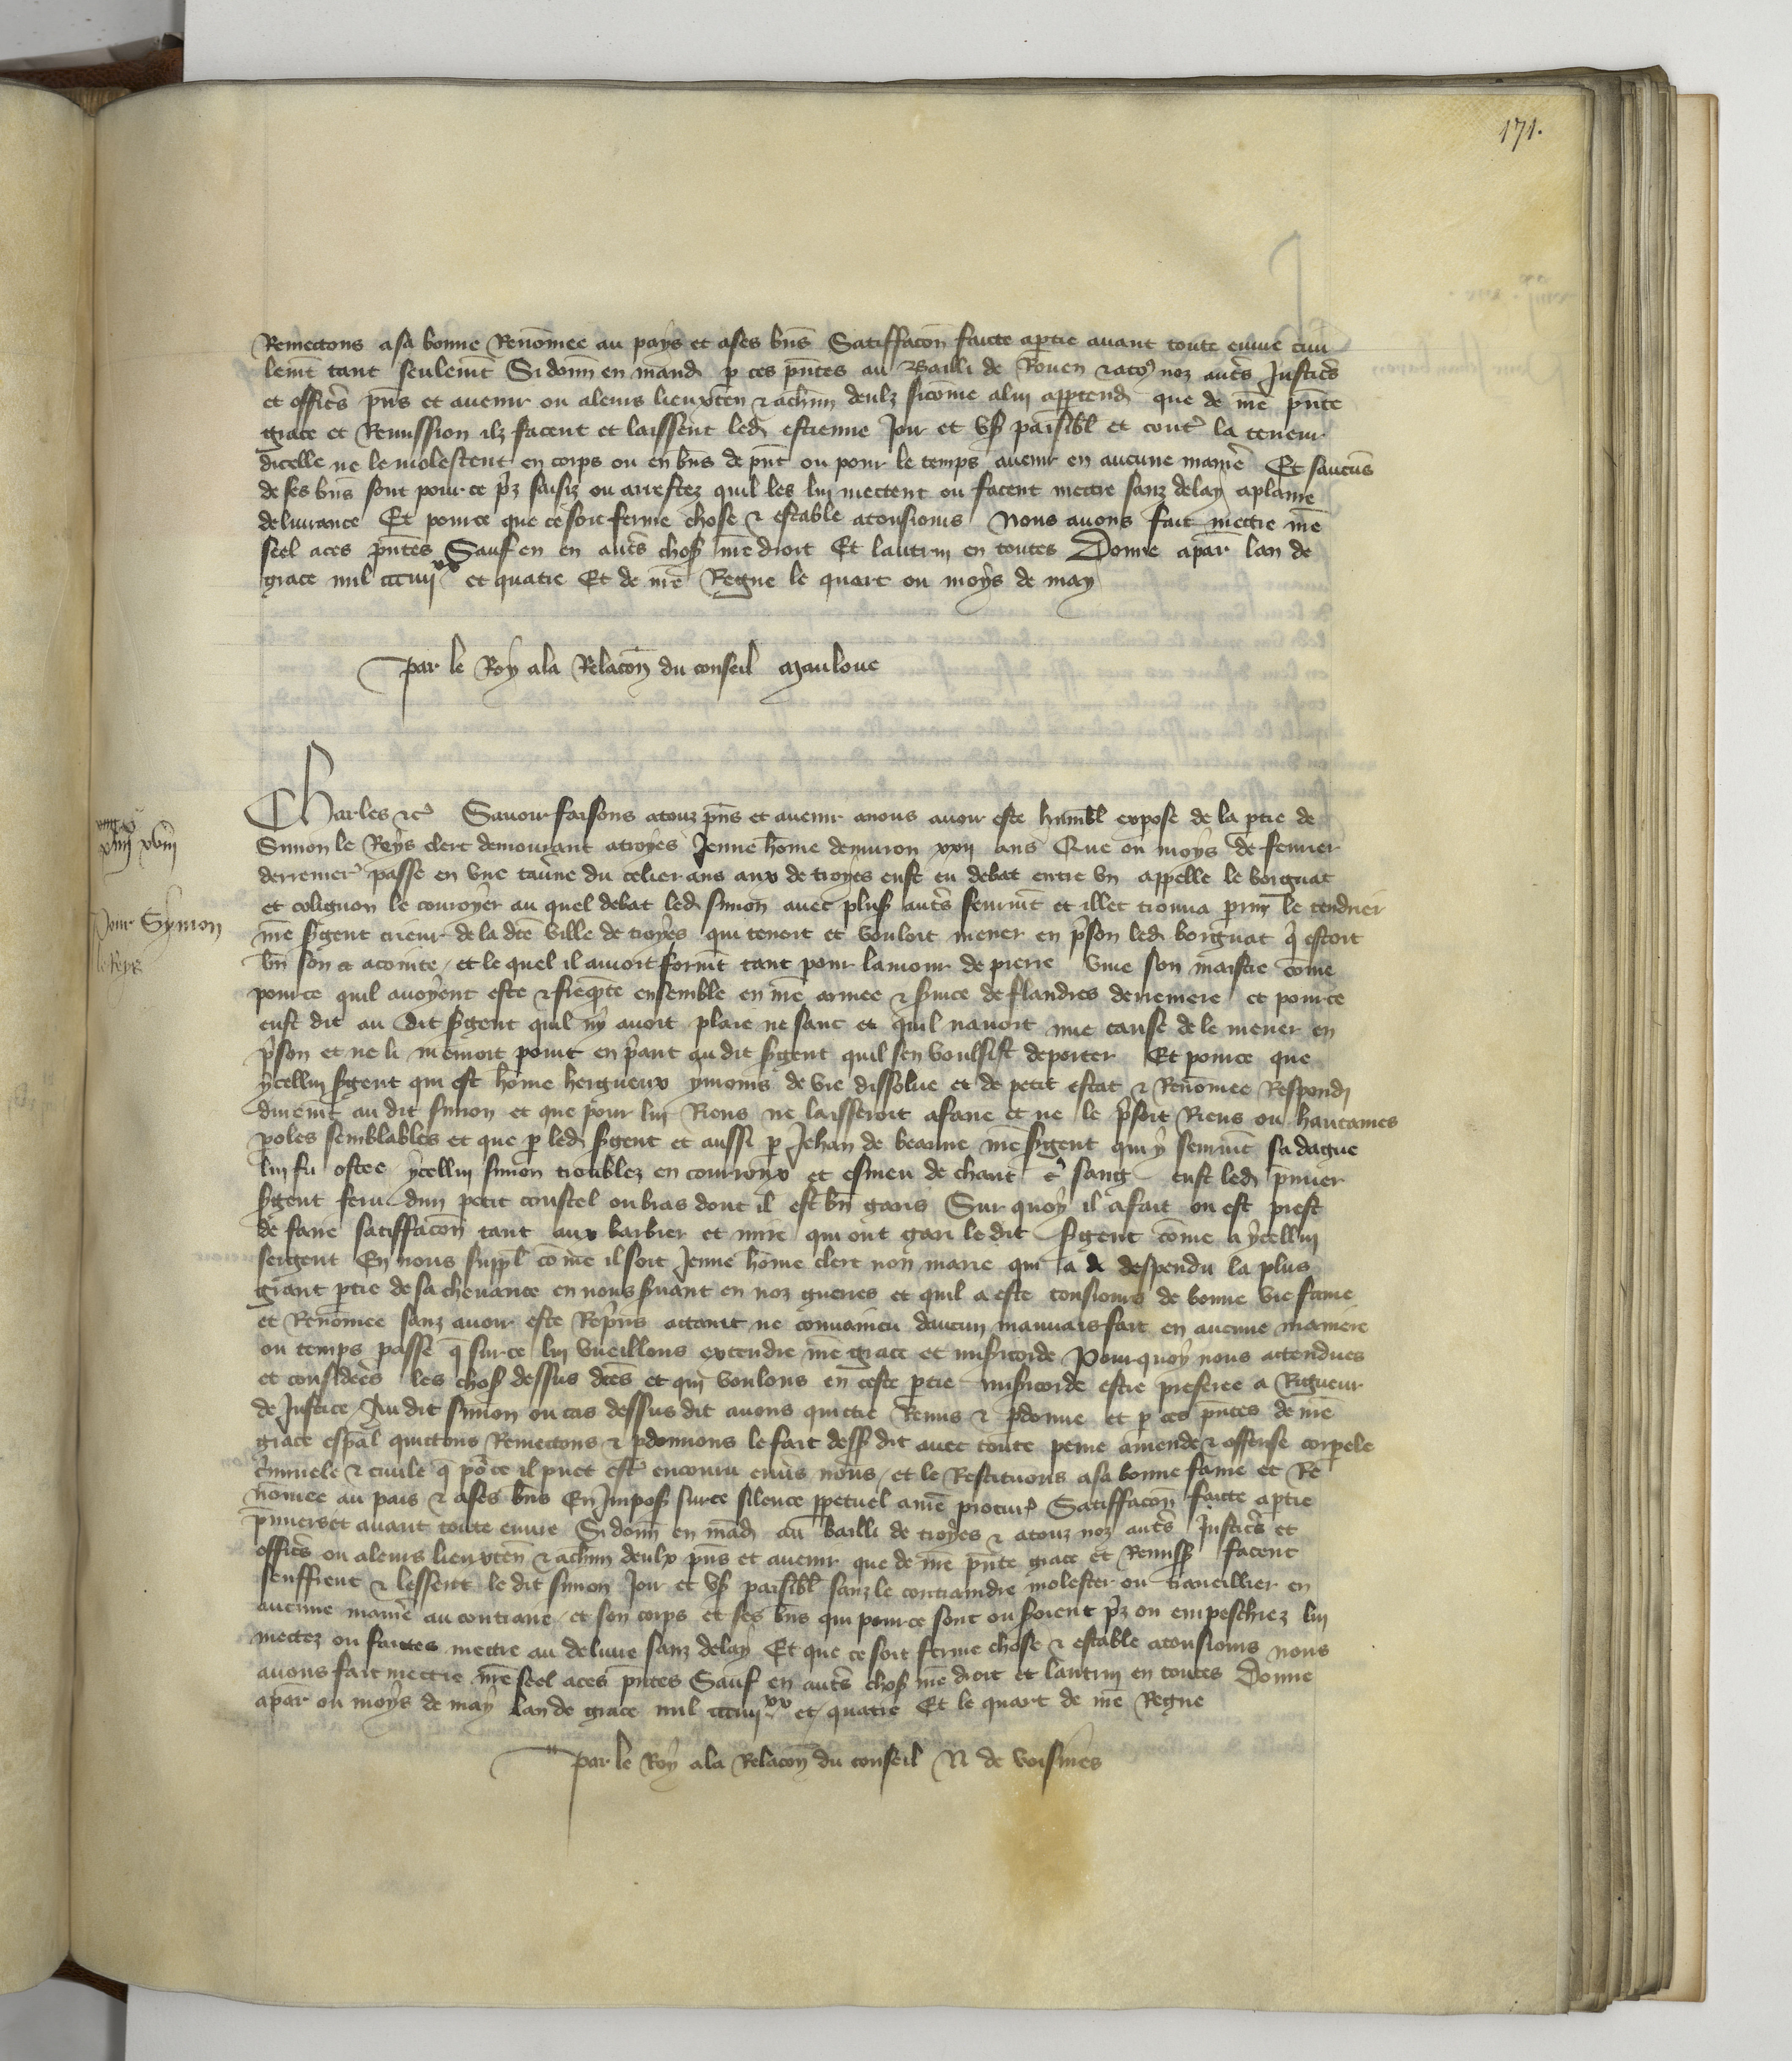 171.
Remettons a sa bonne Renom̄ee au pays et a ses bn̄s Satiffacōn faicte a ptie auant toute euure ciui
lemēt tant seulemēt Si donn̄ en mand p ces pn̄tes au Bailli de Rouen ⁊ a toꝰ noz autrēs Justicrs̄
et officrs̄ pn̄s et auenir ou a leurs lieuxten ⁊ a chūn deulz sicom̄e a lui apptend que de n̄re pn̄te
grace et Remission ilz facent et laissent led estienne Jour et vs̄ paisibl et contrē la teneur
dicelle ne le molestent en corps ou en bn̄s de pn̄t ou pour le temps auenir en aucune manier̄e Et saucūs
de ses bn̄s sont pour ce prz̄ saisiz ou arrestez quil les lui mettent ou facent mettre sanz delay a plaine
deliurance Et pour ce que ce soit ferme chose ⁊ estable a tousiours Nous auons fait mettre nr̄e
seel a ces pn̄tes Sauf en autrēs chos̄ nr̄e droit Et lautruy en toutes Donne a par̄ lan de
grace mil ccciiij xx et quatre Et de nr̄e Regne le quart ou moys de may
par le Roy a la Relacōn du conseil Mauloue
Charles ⁊c̄ Sauoir faisons a touz pn̄s et auenir a nous auoir este humbl expose de la ptie de
Simon le Reys clerc demourant a troyes Jenne hom̄e denuiron xxij ans Que ou moys de feurier
derrenier passe en vne tauēne du celier aus de troyes eust eu debat entre vn appelle le borgnat
et colignon le couroyer au quel debat led simon auec plus̄ autrēs seuruīt et illec trouua le tendrier
Pour Symon
le Reys
nr̄e sr̄gent crieur de la dc̄te ville de troyes qui tenoit et vouloit mener en pr̄son led borgnat qi estoit
bn̄ son et acointe, et le quel il amoit formēt tant pour lamour de pierre son maistre com̄e
pour ce quil auoyent este ⁊ freqn̄te ensemble en nr̄e armee ⁊ sr̄uice de flandres derreniere et pour ce
eust dit au dit sr̄gent quil ny auoit plaie ne sanc et quil nauoit mie cause de le mener en
pr̄son et ne li menroit point en pr̄ant au dit sr̄gent quil sen voulsist deporter Et pour ce que
ycellui sr̄gent qui est hom̄e hergneux yuroins de vie dissolue et de petit estat ⁊ Renom̄ee Respondi
duremēt au dit simon et que pour lui Riens ne laisseroit a faire et ne le pr̄soit Riens ou hautaines
poles semblables et que p led sr̄gent et aussi p Jehan de beaune nr̄e sr̄gent qui y seuruīt sa dague
lui fu ostee ycellui simon troublez en courroux et esmeu de chaut sang eust led pmier
sr̄gent feru dun petit coustel ou bras dont il est bn̄ garis Sur quoy il a fait ou est prest
de faire satiffacōn tant aux barbier et mire qui ont gari le dit sr̄gent com̄e a ycellui
sergent En nous suppl com̄e il soit Jenne hom̄e clerc non marie qui a despendu la plus
grant ptie de sa cheuance en nous sr̄uant en noz guerres et quil a este tousiours de bonne vie fame
et Renom̄ee sanz auoir este Repris attaint ne conuaincu daucun mauuais fait en aucune maniere
ou temps passe q̄ sur ce lui vueillons extendre nr̄e grace et misr̄icorde Pour quoy nous attendues
et considerēs les chos̄ dessus dc̄tes et qui voulons en ceste ptie misr̄icorde estre preferee a Rigueur
de Justice Au dit simon ou cas dessus dit auons quictie Remis ⁊ pdonne et p ces pn̄tes de nr̄e
grace esp̄al quittons Remettons ⁊ pdonnons le fait dess̄ dit auec toute peine amende ⁊ offense corpele
cr̄iminele ⁊ ciuile q̄ pō ce il puet estr̄e encouru enuūs nous, et le Restituons a sa bonne fame et Re
nom̄ee au pais ⁊ a ses bn̄s En Impos̄ sur ce silence ppetuel a nr̄e procur̄ Satiffacōn faicte a ptie
pmiers et auant toute euure Si donn̄ en mād au bailli de troyes ⁊ a touz noz autrēs Justicrs̄ et
officrs̄ ou a leurs lieuxten ⁊ a chūn deulx pn̄s et auenir que de nr̄e pn̄te grace et Remiss̄ facent
seuffrent ⁊ lessent le dit simon Jour et vs̄ paisibl sanz le contraindre molester ou traueillier en
aucune manierē au contraire, et son corps et ses bn̄s qui pour ce sont ou seroient prz̄ ou empeschiez lui
mettez ou faictes mettre au deliure sanz delay Et que ce soit ferme chose ⁊ estable a tousiours nous
auons fait mettre nr̄e seel a ces pn̄tes Sauf en autrēs chos̄ nr̄e droit et lautruy en toutes Donne
a par̄ ou moys de may lan de grace mil ccciiij xx et quatre Et le quart de nr̄e Regne
par le Roy a la Relacōn du conseil N de voisines